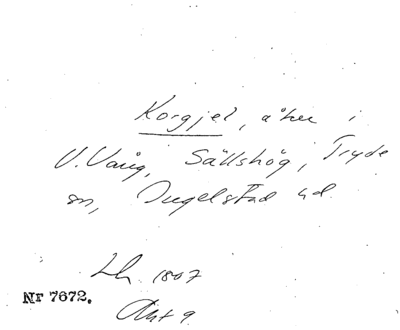 Korgjel, åker i
V. Vång, Sällshög, Tryde
sn, Ingelstad hd
Lh 1807
Akt 9
Nr 7672.